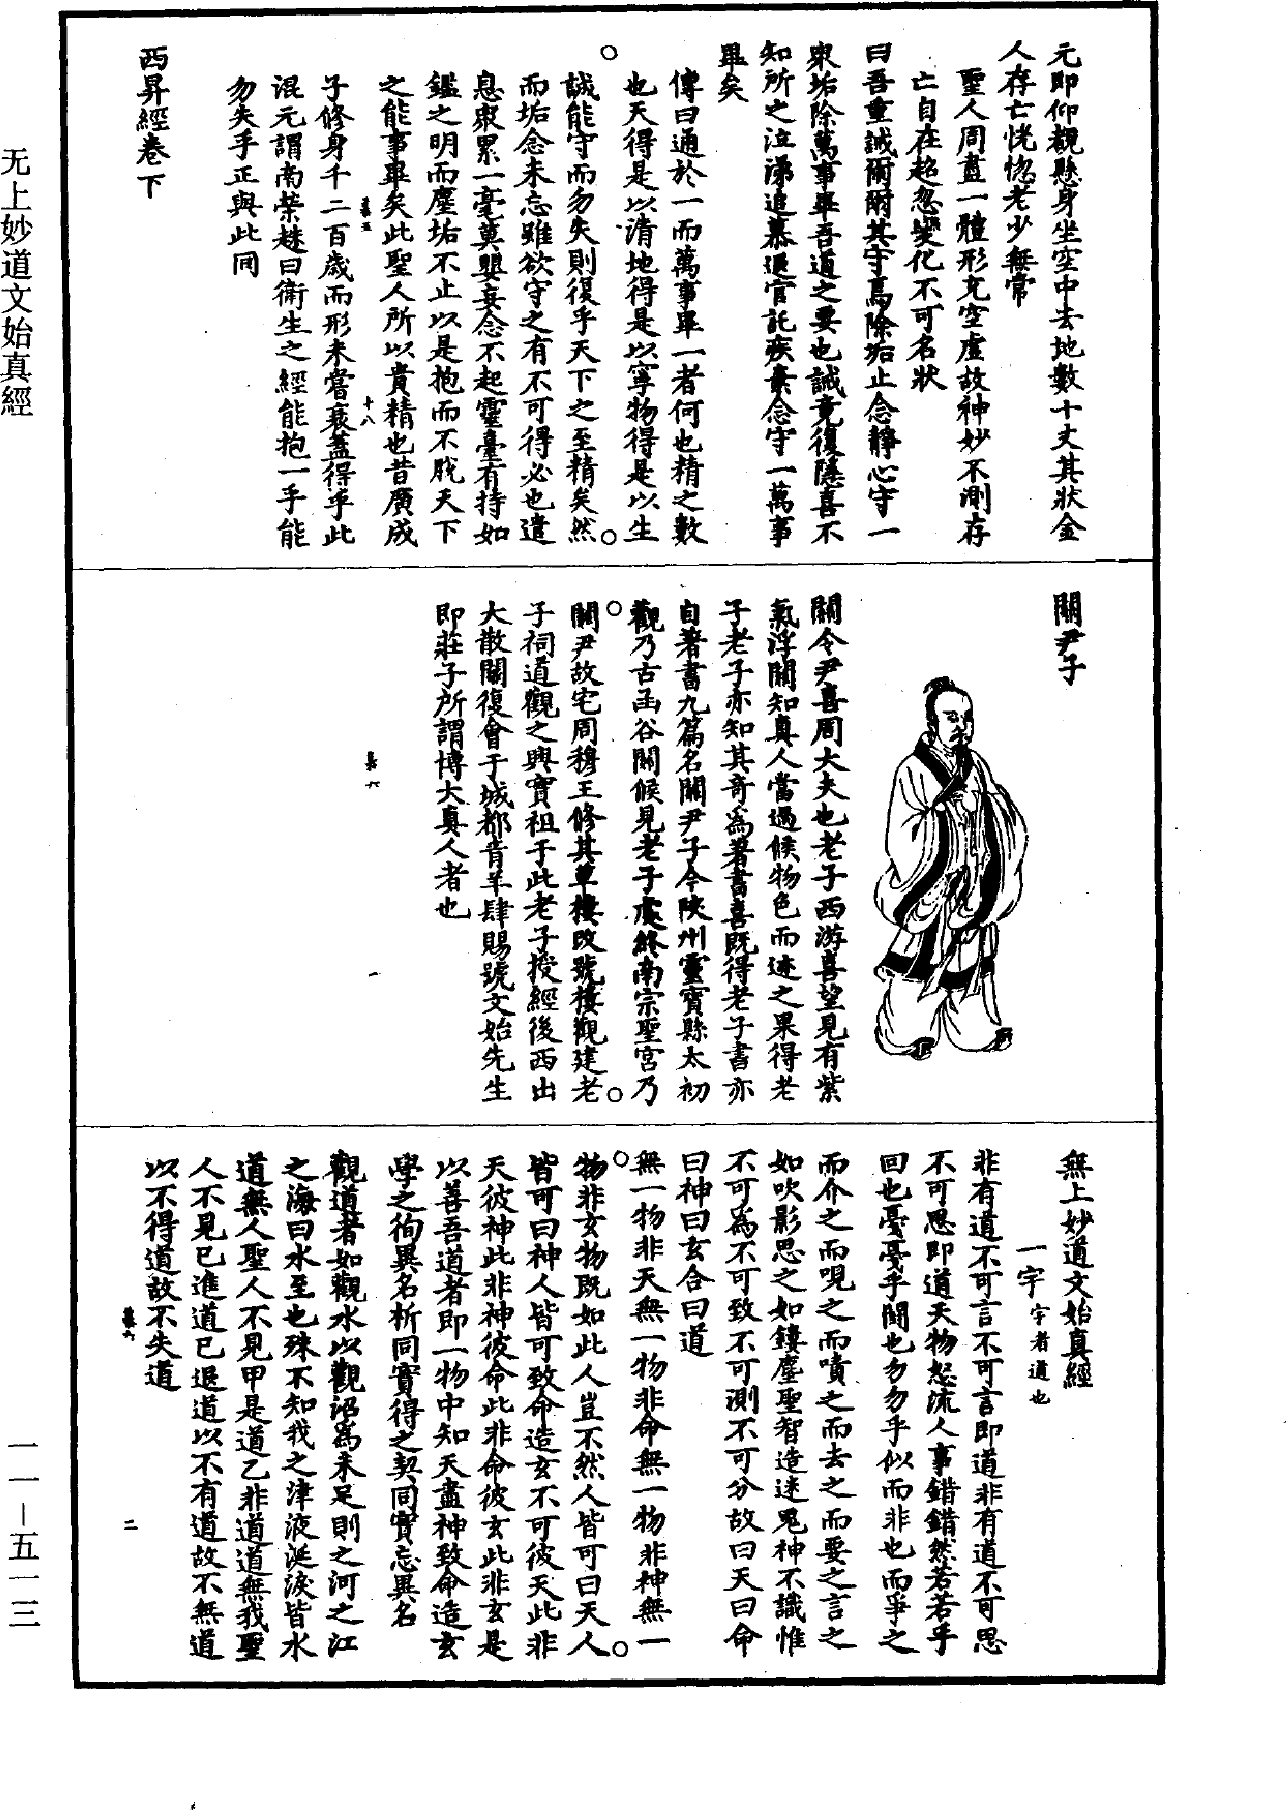 元即仰觀懸身坐空中去地數十丈其狀金
人存亡恍惚老少無常
聖人周盡一體形充空虛故神妙不測存
亡自在超忽變化不可名狀
曰吾重誡爾爾其守焉除垢止念靜心守一
衆垢除萬事畢吾道之要也誡竟復隱喜不
知所之泣涕追慕退官託疾棄念守一萬事
畢矣
傳曰通於一而萬事畢一者何也精之數
也天得是以清地得是以寧物得是以生
誠能守而勿失則復乎天下之至精矣然
而垢念未忘雖欲守之有不可得必也遣
息衆累一毫莫嬰妄念不起靈臺有持如
鑑之明而塵垢不止以是抱而不脫天下
之能事畢矣此聖人所以貴精也昔廣成
嘉五 十八
子修身千二百歲而形未嘗衰蓋得乎此
混元謂南榮趎曰衛生之經能抱一乎能
勿失乎正與此同
西昇經卷下
關尹子
關令尹喜周大夫也老子西游喜望見有紫
氣浮關知真人當過候物色而迹之果得老
子老子亦知其奇為著書喜既得老子書亦
自著書九篇名關尹子今陝州靈寶縣太初
觀乃古函谷關候見老子處終南宗聖宮乃
關尹故宅周穆王修其草樓改號樓觀建老
子祠道觀之興實祖于此老子授經後西出
大散關復會于城都青羊肆賜號文始先生
即莊子所謂博大真人者也
嘉六 一
無上妙道文始真經
一宇宇者道也
非有道不可言不可言即道非有道不可思
不可思即道天物怒流人事錯錯然若若乎
回也戞戞乎鬭也勿勿乎似而非也而爭之
而介之而哯之而嘖之而去之而要之言之
如吹影思之如鏤塵聖智造迷鬼神不識惟
不可為不可致不可測不可分故曰天曰命
曰神曰玄合曰道
無一物非天無一物非命無一物非神無一
物非玄物既如此人豈不然人皆可曰天人
皆可曰神人皆可致命造玄不可彼天此非
天彼神此非神彼命此非命彼玄此非玄是
以善吾道者即一物中知天盡神致命造玄
學之徇異名析同實得之契同實忘異名
觀道者如觀水以觀沼為未足則之河之江
之海曰水至也殊不知我之津液涎淚皆水
道無人聖人不見甲是道乙非道道無我聖
人不見己進道已退道以不有道故不無道
以不得道故不失道
嘉六 二
无上妙道文始真經
一一－五一三